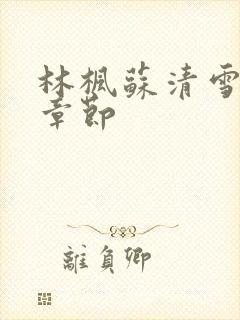 林楓蘇清雪
章節
離負卿